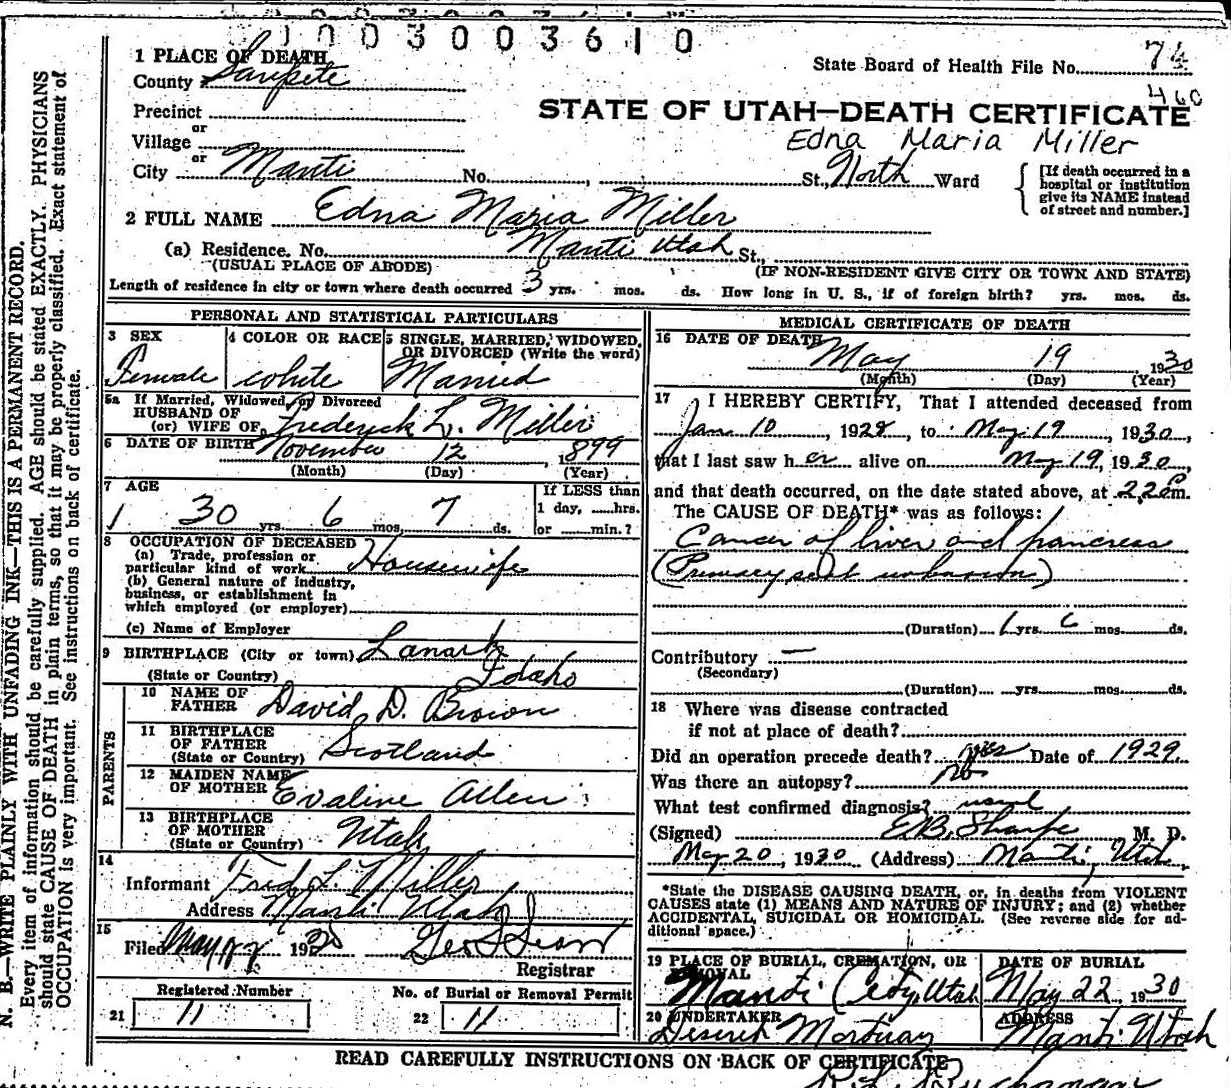 1003003610
1 PLACE OF DEATH
County Sanpete
State Board of Health File No. 74
460
Precinct
or
Village
or
City Manti No. , St., North Ward
STATE OF UTAH—DEATH CERTIFICATE
Edna Maria Miller
[If death occurred in a
hospital or institution
give its NAME instead
of street and number.]
2 FULL NAME Edna Maria Miller
(a) Residence. No. Manti Utah St.,
(USUAL PLACE OF ABODE) (IF NON-RESIDENT GIVE CITY OR TOWN AND STATE)
Length of residence in city or town where death occurred 3 yrs. mos. ds. How long in U. S., if of foreign birth? yrs. mos. ds.
PERSONAL AND STATISTICAL PARTICULARS
3 SEX
Female
4 COLOR OR RACE
white
5 SINGLE, MARRIED, WIDOWED,
OR DIVORCED (Write the word)
Married
5a If Married, Widowed, or Divorced
HUSBAND OF
(or) WIFE OF Frederick L. Miller
6 DATE OF BIRTH November 12, 1899
(Month) (Day) (Year)
7 AGE
30 yrs. 6 mos. 7 ds.
If LESS than
1 day, hrs.
or min.?
8 OCCUPATION OF DECEASED
(a) Trade, profession or
particular kind of work Housewife
(b) General nature of industry,
business, or establishment in
which employed (or employer)
(c) Name of Employer
9 BIRTHPLACE (City or town) Lanark
(State or Country) Idaho
PARENTS
10 NAME OF
FATHER David D. Brown
11 BIRTHPLACE
OF FATHER
(State or Country) Scotland
12 MAIDEN NAME
OF MOTHER Evaline Allen
13 BIRTHPLACE
OF MOTHER
(State or Country) Utah
14
Informant Fred L Miller
Address Manti Utah
15
Filed May 22 19
Registrar
Registered Number
21 11
No. of Burial or Removal Permit
22 11
MEDICAL CERTIFICATE OF DEATH
16 DATE OF DEATH
May 19 1930
(Month) (Day) (Year)
17 I HEREBY CERTIFY, That I attended deceased from
Jan 10, 1928, to May 19, 1930,
that I last saw her alive on May 19, 1930,
and that death occurred, on the date stated above, at 2.20 Pm.
The CAUSE OF DEATH* was as follows:
Cancer of liver and pancreas
(Primary seat unknown)
(Duration) 1 yrs. 6 mos. ds.
Contributory —
(Secondary)
(Duration) yrs. mos. ds.
18 Where was disease contracted
if not at place of death?
Did an operation precede death? yes Date of 1929
Was there an autopsy? no
What test confirmed diagnosis? usual
(Signed) E.B. Sharpe M. D.
May 20, 1930 (Address) Manti, Utah
*State the DISEASE CAUSING DEATH, or, in deaths from VIOLENT
CAUSES state (1) MEANS AND NATURE OF INJURY; and (2) whether
ACCIDENTAL, SUICIDAL OR HOMICIDAL. (See reverse side for ad-
ditional space.)
19 PLACE OF BURIAL, CREMATION, OR
REMOVAL
Manti City, Utah
DATE OF BURIAL
May 22 1930
20 UNDERTAKER
Deseret Mortuary
ADDRESS
Manti Utah
READ CAREFULLY INSTRUCTIONS ON BACK OF CERTIFICATE
N. B.—WRITE PLAINLY WITH UNFADING INK—THIS IS A PERMANENT RECORD.
Every item of information should be carefully supplied. AGE should be stated EXACTLY. PHYSICIANS
should state CAUSE OF DEATH in plain terms, so that it may be properly classified. Exact statement of
OCCUPATION is very important. See instructions on back of certificate.